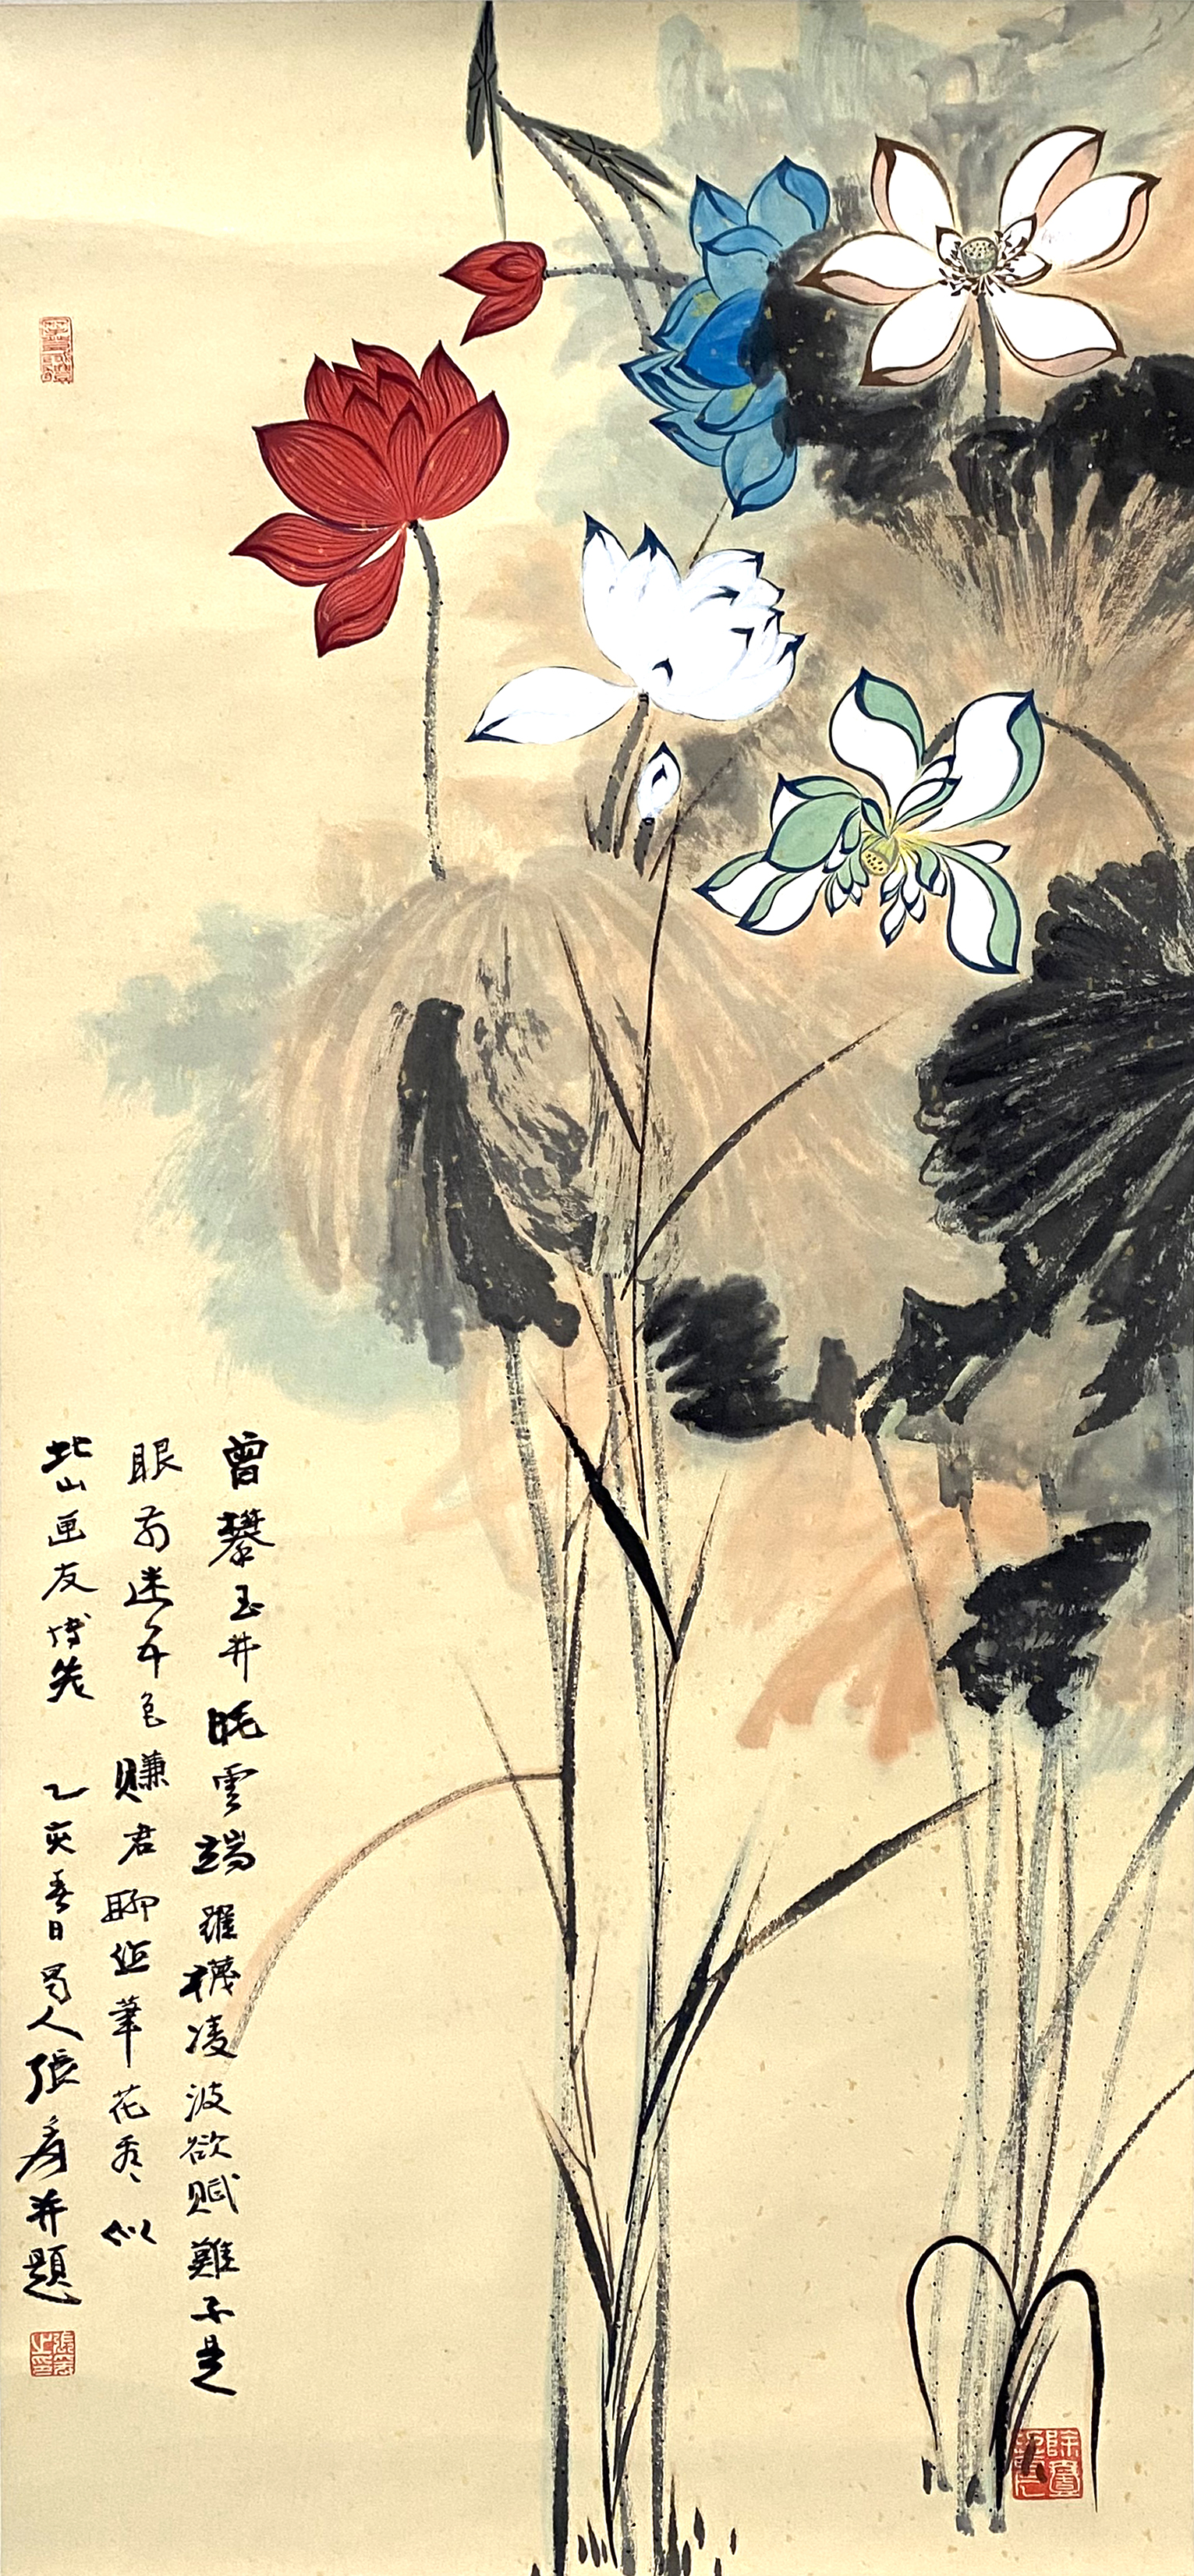 曾攀玉井眊雲端羅襪凌波欲賦難不是
眼前迷五色賺君聊作筆花看似
北山画友博笑 乙亥春日蜀人張爰并題
張爰之印